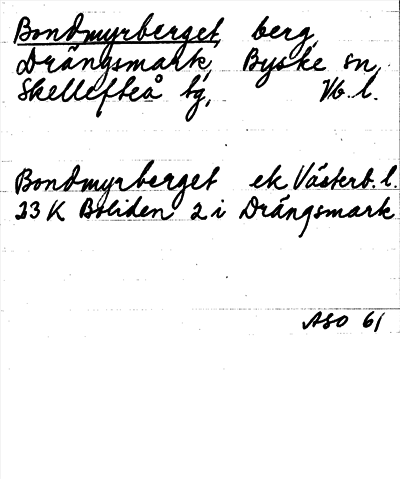 Bondmyrberget, berg,
Drängsmark, Byske sn,
Skellefteå tg, Vb. l.
Bondmyrberget ek Västerb. l.
23 K Boliden 2 i Drängsmark
ASO 61